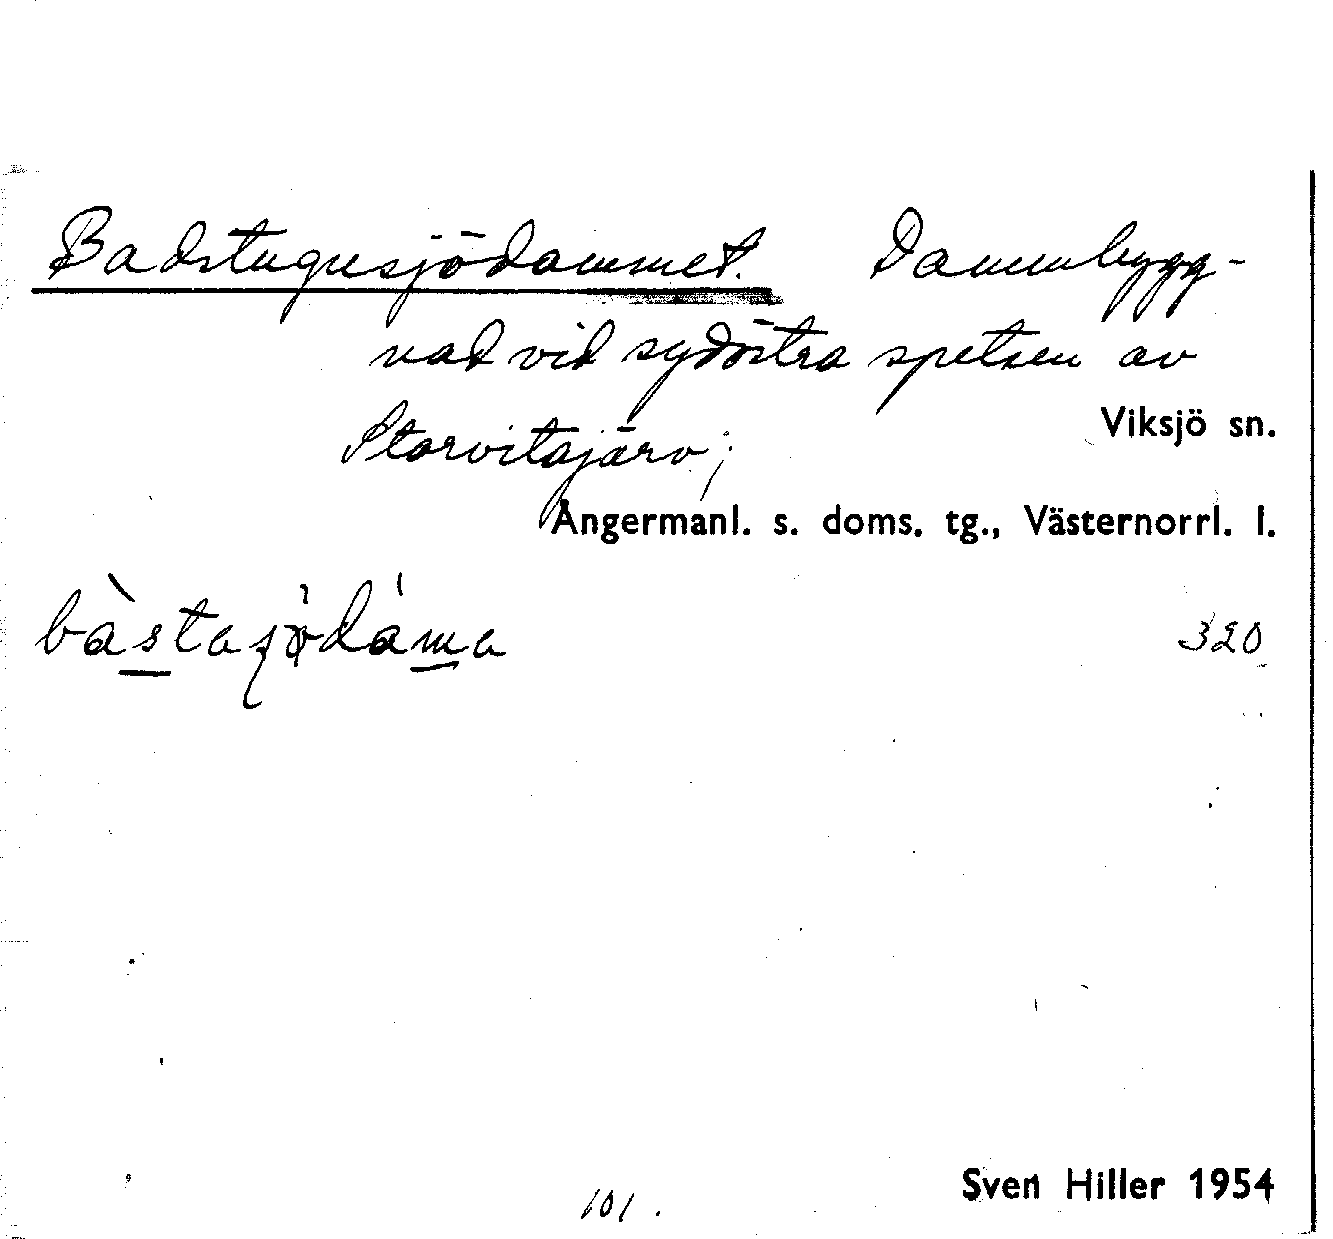 Badstugusjödammet. Dammbygg-
nad vid sydöstra spetsen av
Storvitajärv;
Viksjö sn.
Ångermanl. s. doms. tg., Västernorrl. l.
bàstasjödáma
320
101.
Sven Hiller 1954